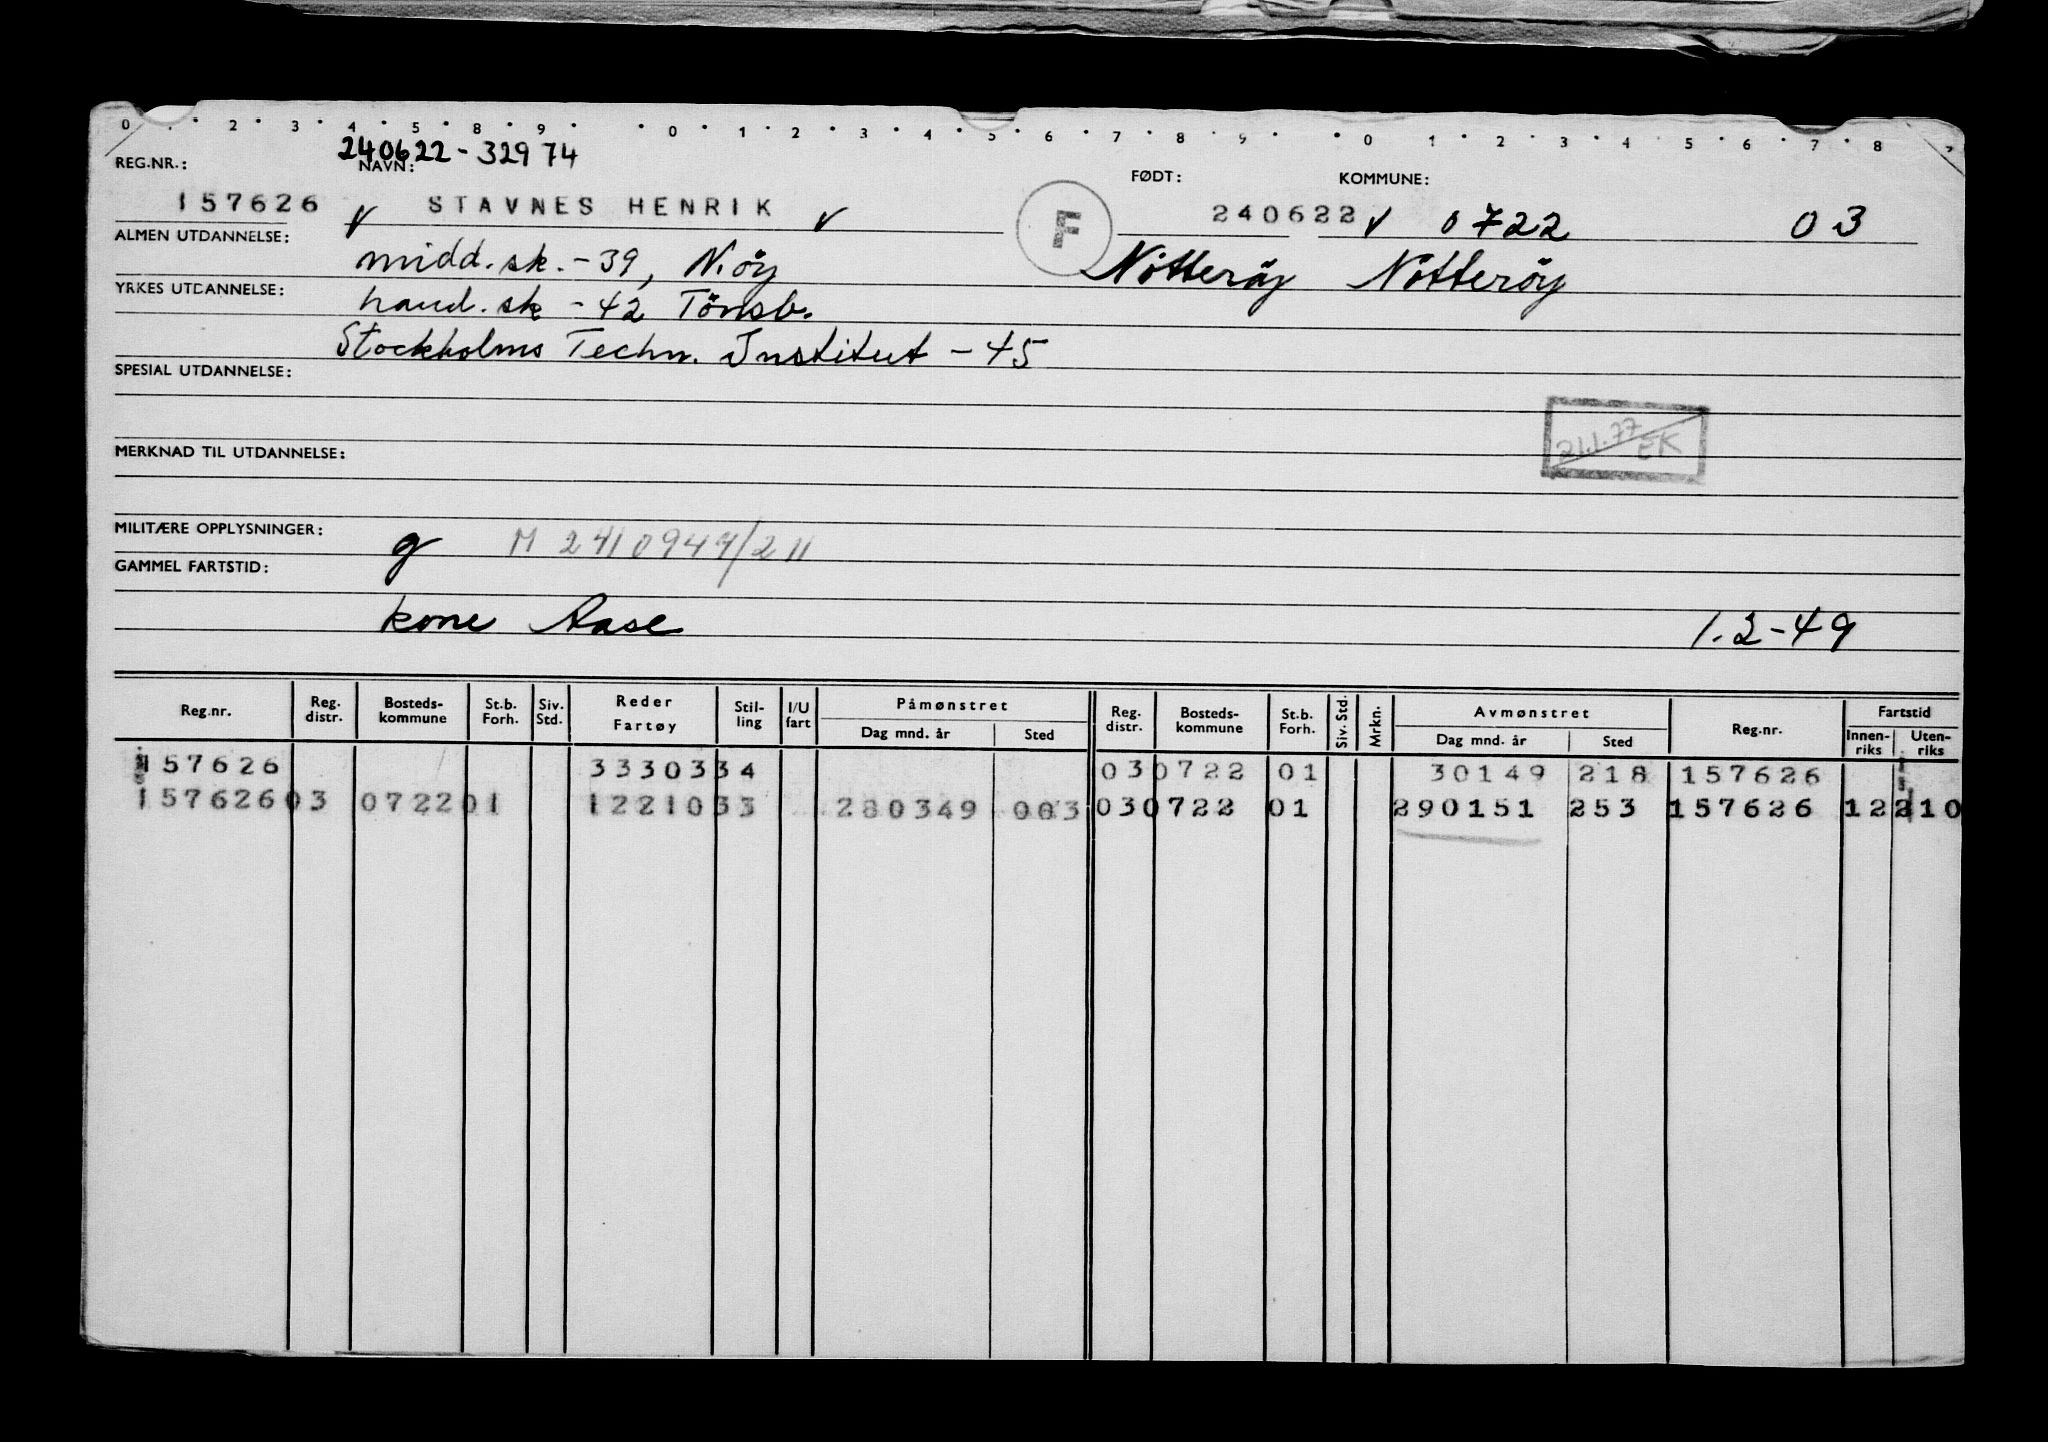 0 · 2 · 3 · 4 · 5 · 8 · 9 · · 0 · 1 · 2 · 3 · 4 · 5 · 6 · 7 · 8 · 9 · · 0 · 1 · 2 · 3 · 4 · 5 · 6 · 7 · 8
240622-32974
REG.NR.: NAVN: FØDT: KOMMUNE:
157626 v STAVNES HENRIK v F 240622 v 0722 03
ALMEN UTDANNELSE: midd.sk.-39, N.öy Nötteröy Nötteröy
YRKES UTDANNELSE: hand.sk -42 Tönsb.
Stockholms Techn. Institut -45
SPESIAL UTDANNELSE:
21.1.77 EK
MERKNAD TIL UTDANNELSE:
MILITÆRE OPPLYSNINGER: g M 2410947/211
GAMMEL FARTSTID:
kone Aase 1.2-49
Reg.nr. Reg. distr. Bosteds-kommune St.b. Forh. Siv. Std. Reder Fartøy Stil-ling I/U fart Påmønstret Dag mnd. år Sted Reg. distr. Bosteds-kommune St.b. Forh. Siv. Std. Mrkn. Avmønstret Dag mnd. år Sted Reg.nr. Fartstid Innen-riks Uten-riks
157626 3330334 030722 01 30149 218 157626
15762603 072201 1221033 280349 003 030722 01 290151 253 157626 12210